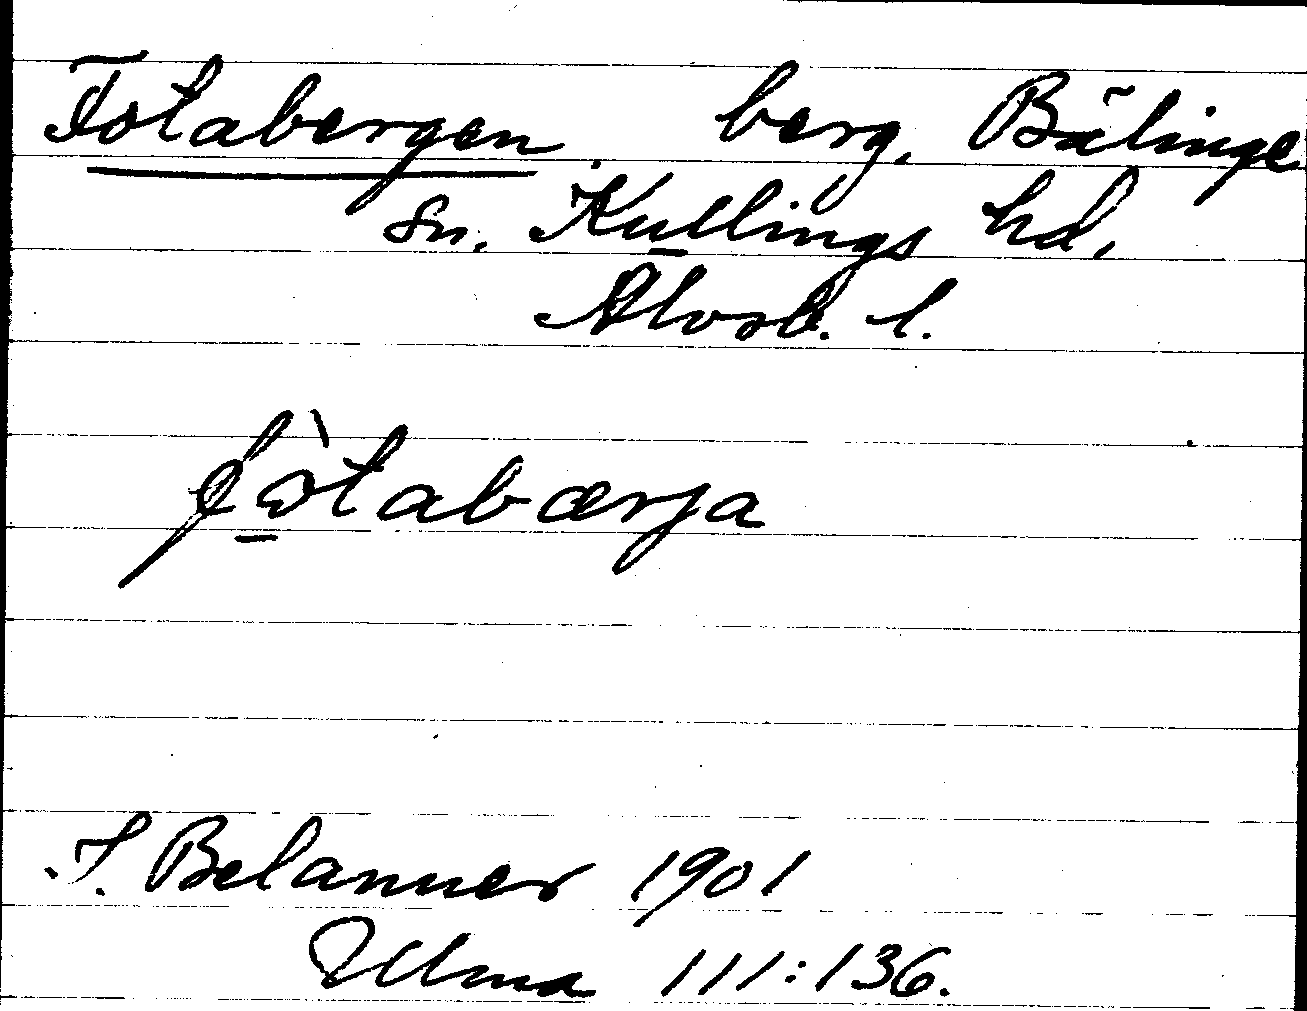 Fotabergen. berg, Bälinge
sn. Kullings hd.
Älvsb. l.
fòtabærja
S. Belanner 1901
Ulma 111:136.